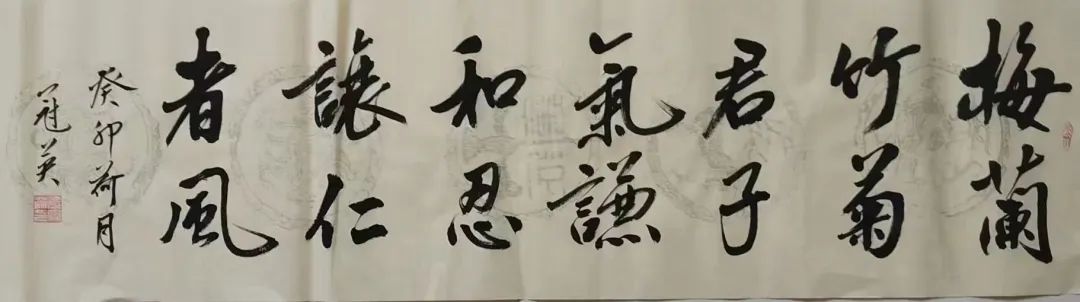 梅蘭
竹菊
君子
氣謙
和忍
讓仁
者風
癸卯荷月
冠英